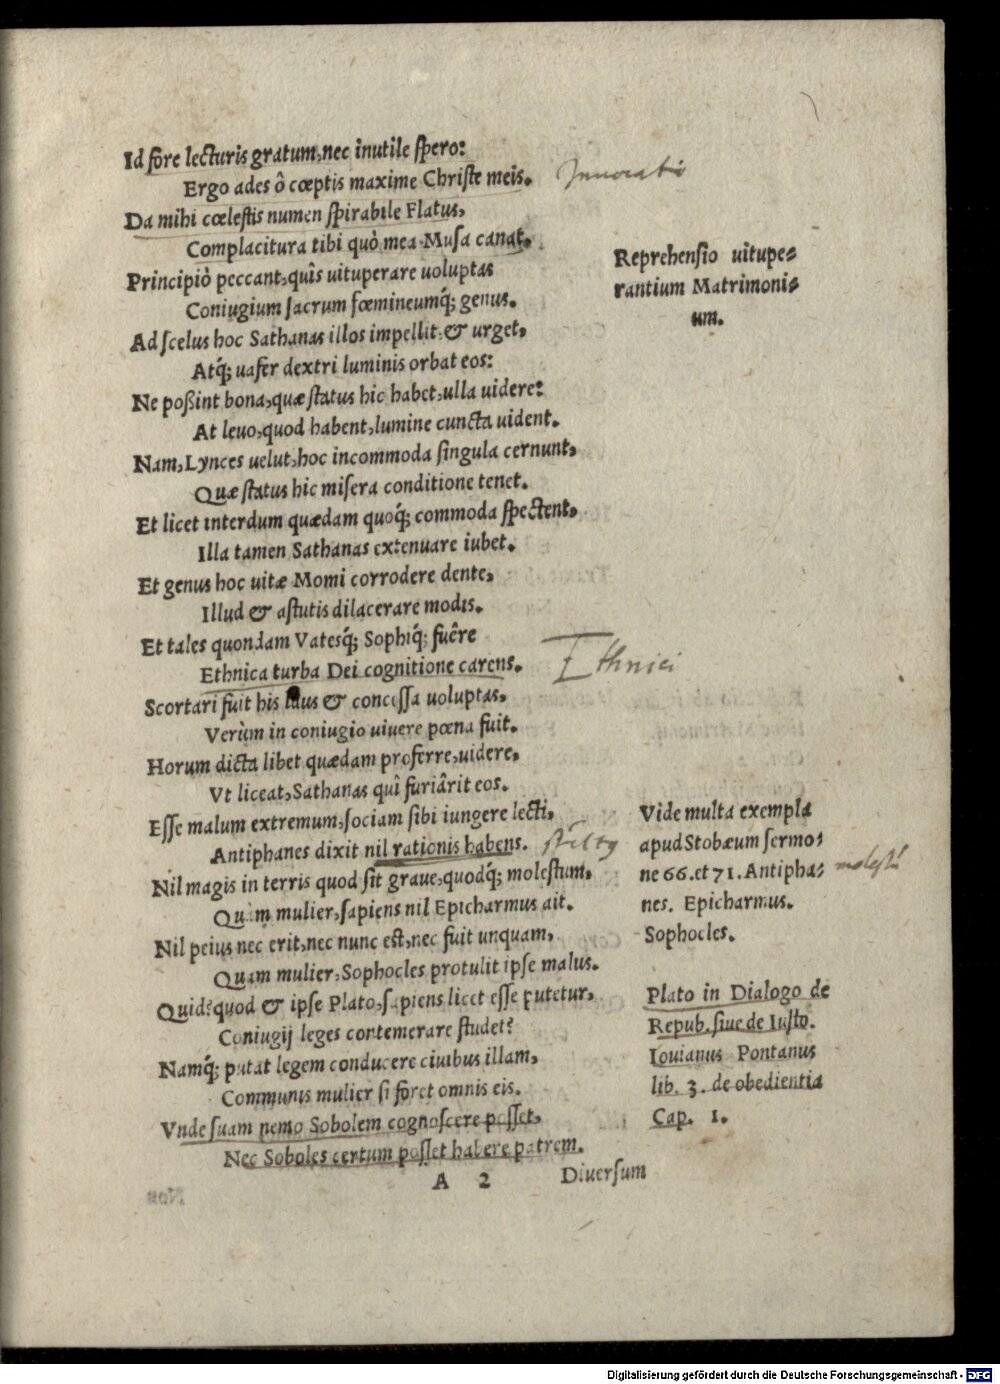 Id fore lecturis gratum, nec inutile spero:
Ergo ades ô cœptis maxime Christe meis.
Da mihi cœlestis numen spirabile Flatus,
Complacitura tibi quò mea Musa canat.
Principiò peccant, quîs uituperare uoluptas
Coniugium sacrum fœmineumq́; genus.
Ad scelus hoc Sathanas illos impellit & urget,
Atq́; uafer dextri luminis orbat eos:
Ne poßint bona, quæ status hic habet, ulla uidere:
At leuo, quod habent, lumine cuncta uident.
Nam, Lynces uelut, hoc incommoda singula cernunt,
Quæ status hic misera conditione tenet.
Et licet interdum quædam quoq́; commoda spectent,
Illa tamen Sathanas extenuare iubet.
Et genus hoc uitæ Momi corrodere dente,
Illud & astutis dilacerare modis.
Et tales quondam Vatesq́; Sophiq́; fuêre
Ethnica turba Dei cognitione carens.
Scortari fuit his laus & concessa uoluptas,
Verùm in coniugio uiuere pœna fuit.
Horum dicta libet quædam proferre, uidere,
Vt liceat, Sathanas quî furiârit eos.
Esse malum extremum, sociam sibi iungere lecti,
Antiphanes dixit nil rationis habens.
Nil magis in terris quod sit graue, quodq́; molestum,
Quàm mulier, sapiens nil Epicharmus ait.
Nil peius nec erit, nec nunc est, nec fuit unquam,
Quam mulier, Sophocles protulit ipse malus.
Quid? quod & ipse Plato, sapiens licet esse putetur,
Coniugij leges contemerare studet?
Namq́; putat legem conducere ciuibus illam,
Communis mulier si foret omnis eis.
Vnde suam nemo Sobolem cognoscere posset,
Nec Soboles certum posset habere patrem.
A 2
Diuersum
Reprehensio uitupe=
rantium Matrimoni=
um.
Ethnici
Vide multa exempla
apud Stobæum sermo=
ne 66. et 71. Antipha=
nes. Epicharmus.
Sophocles.
Plato in Dialogo de
Repub. siue de Iusto.
Iouianus Pontanus
lib. 3. de obedientia
Cap. 1.
Digitalisierung gefördert durch die Deutsche Forschungsgemeinschaft - DFG